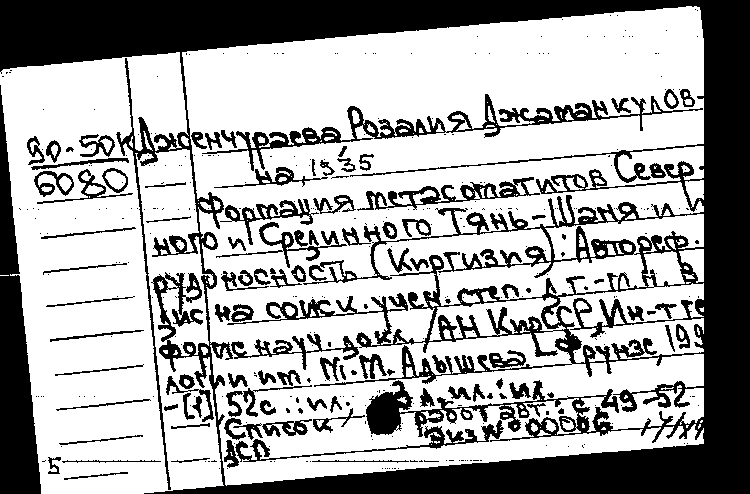 90-50к Дженчураева Розалия Джаманкулов-
6080 на, 1935
Формация метасоматитов Север-
ного и Срединного Тянь-Шаня и и
рудоносность (Киргизия): Автореф.
дис на соиск. учен. степ. д.г.-м.н. В
форме науч. докл. /АН КирССР, Ин-т ге
логии им. М.М. Адышева. - Фрунзе, 199
-[1], 52с.: ил; 3 л. ил.: ил.
Список работ авт.: с. 49-52
ДСП Экз № 00006
5